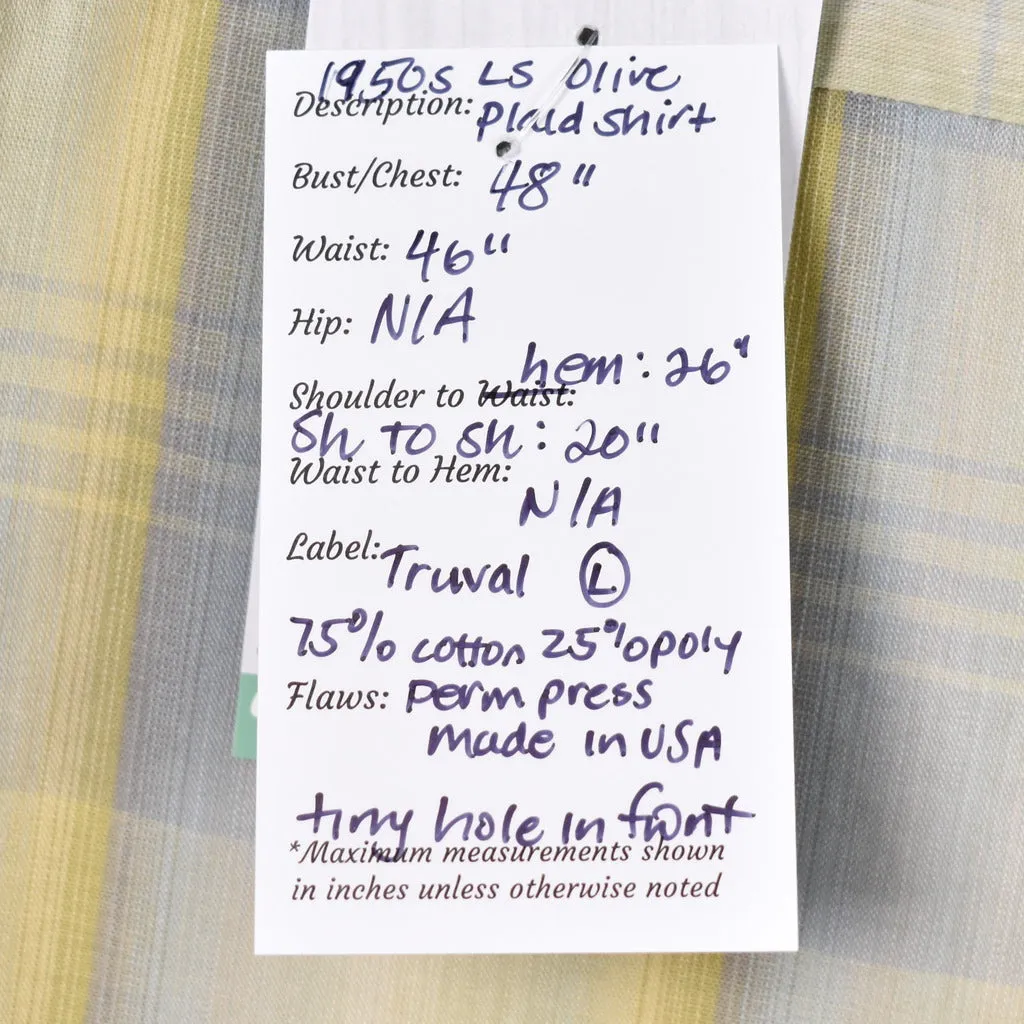 1950s LS Olive
Description: Plaid shirt
Bust/Chest: 48"
Waist: 46"
Hip: N/A
hem: 26"
Shoulder to Waist:
Sh to sh: 20"
Waist to Hem:
N/A
Label: Truval L
75% cotton 25% poly
Flaws: perm press
made in USA
tiny hole in front
*Maximum measurements shown
in inches unless otherwise noted